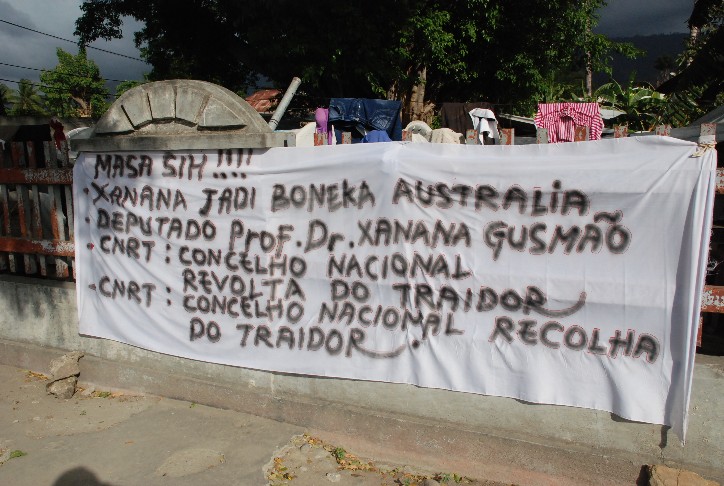 MASA SIH !!!!
• XANANA JADI BONEKA AUSTRALIA
• DEPUTADO Prof. Dr. XANANA GUSMÃO
• CNRT : CONCELHO NACIONAL
REVOLTA DO TRAIDOR
- CNRT : CONCELHO NACIONAL RECOLHA
DO TRAIDOR .